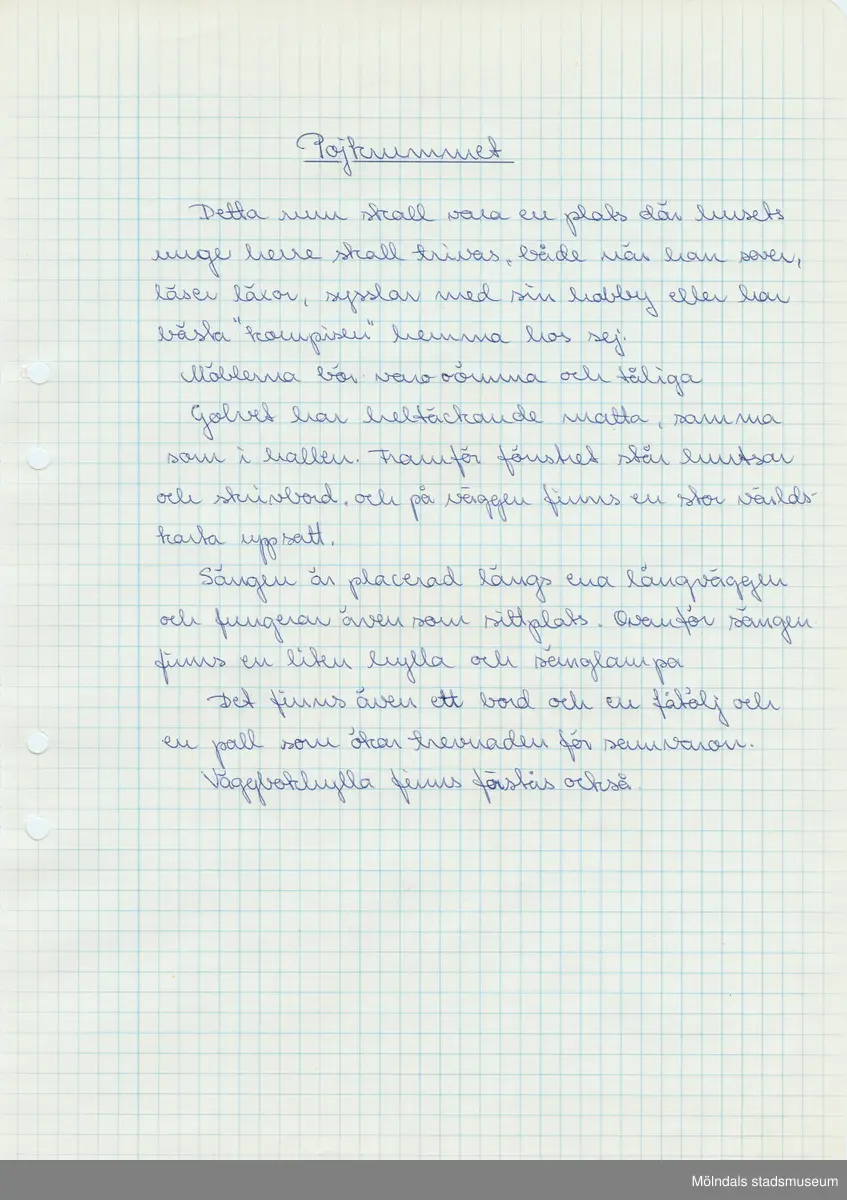 Pojkrummet
Detta rum skall vara en plats där husets
unge herre skall trivas, både när han sover,
läser läxor, sysslar med sin hobby eller har
bästa "kompisen" hemma hos sej.
Möblerna bör vara oömma och tåliga
Golvet har heltäckande matta, samma
som i hallen. Framför fönstret står hurtsar
och skrivbord, och på väggen finns en stor världs-
karta uppsatt.
Sängen är placerad längs ena långväggen
och fungerar även som sittplats. Ovanför sängen
finns en liten hylla och sänglampa
Det finns även ett bord och en fåtölj och
en pall som ökar trevnaden för samvaron.
Väggbokhylla finns förstås också
Mölndals stadsmuseum